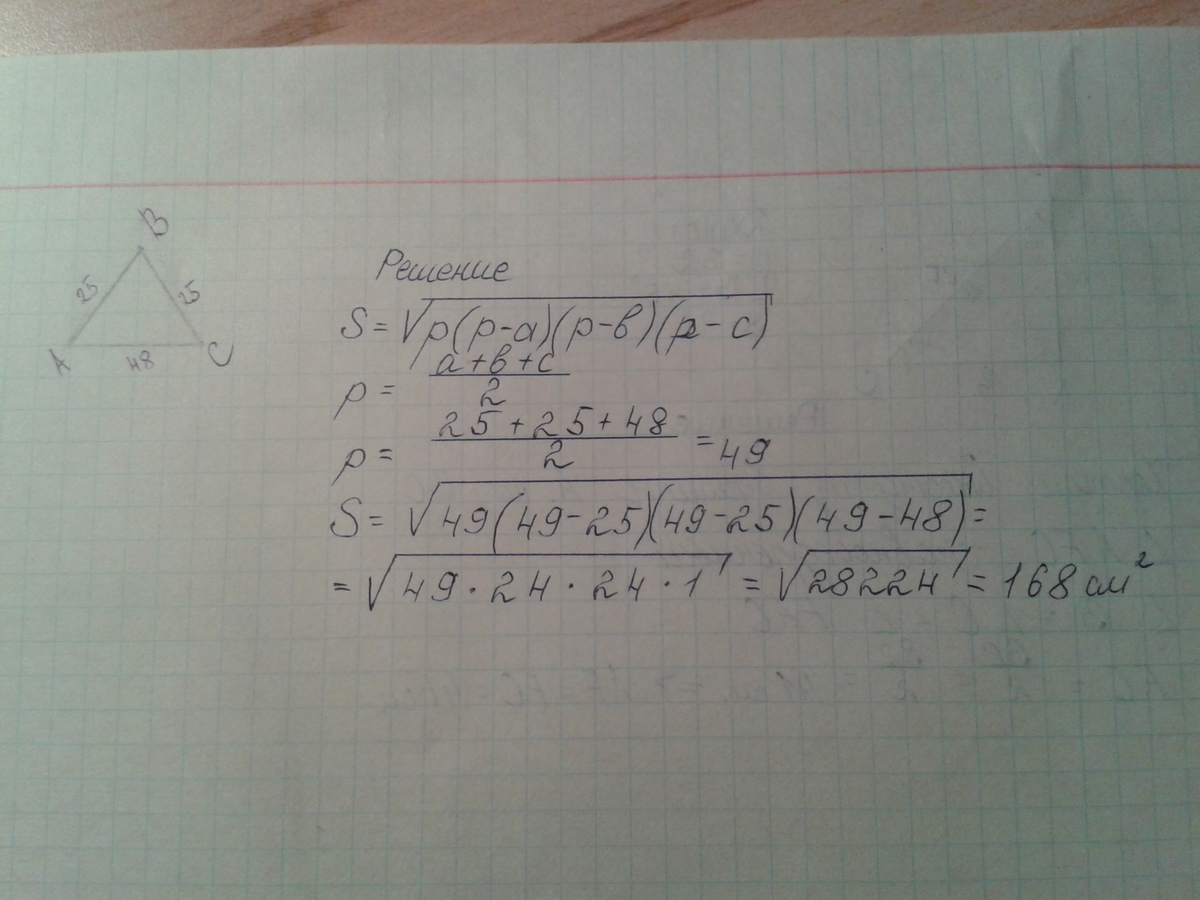 B
25
25
A
48
C
Решение
S = √p(p-a)(p-в)(p-c)
p = a+в+c / 2
p = 25+25+48 / 2 = 49
S = √49(49-25)(49-25)(49-48) =
= √49·24·24·1 = √28224 = 168 см²